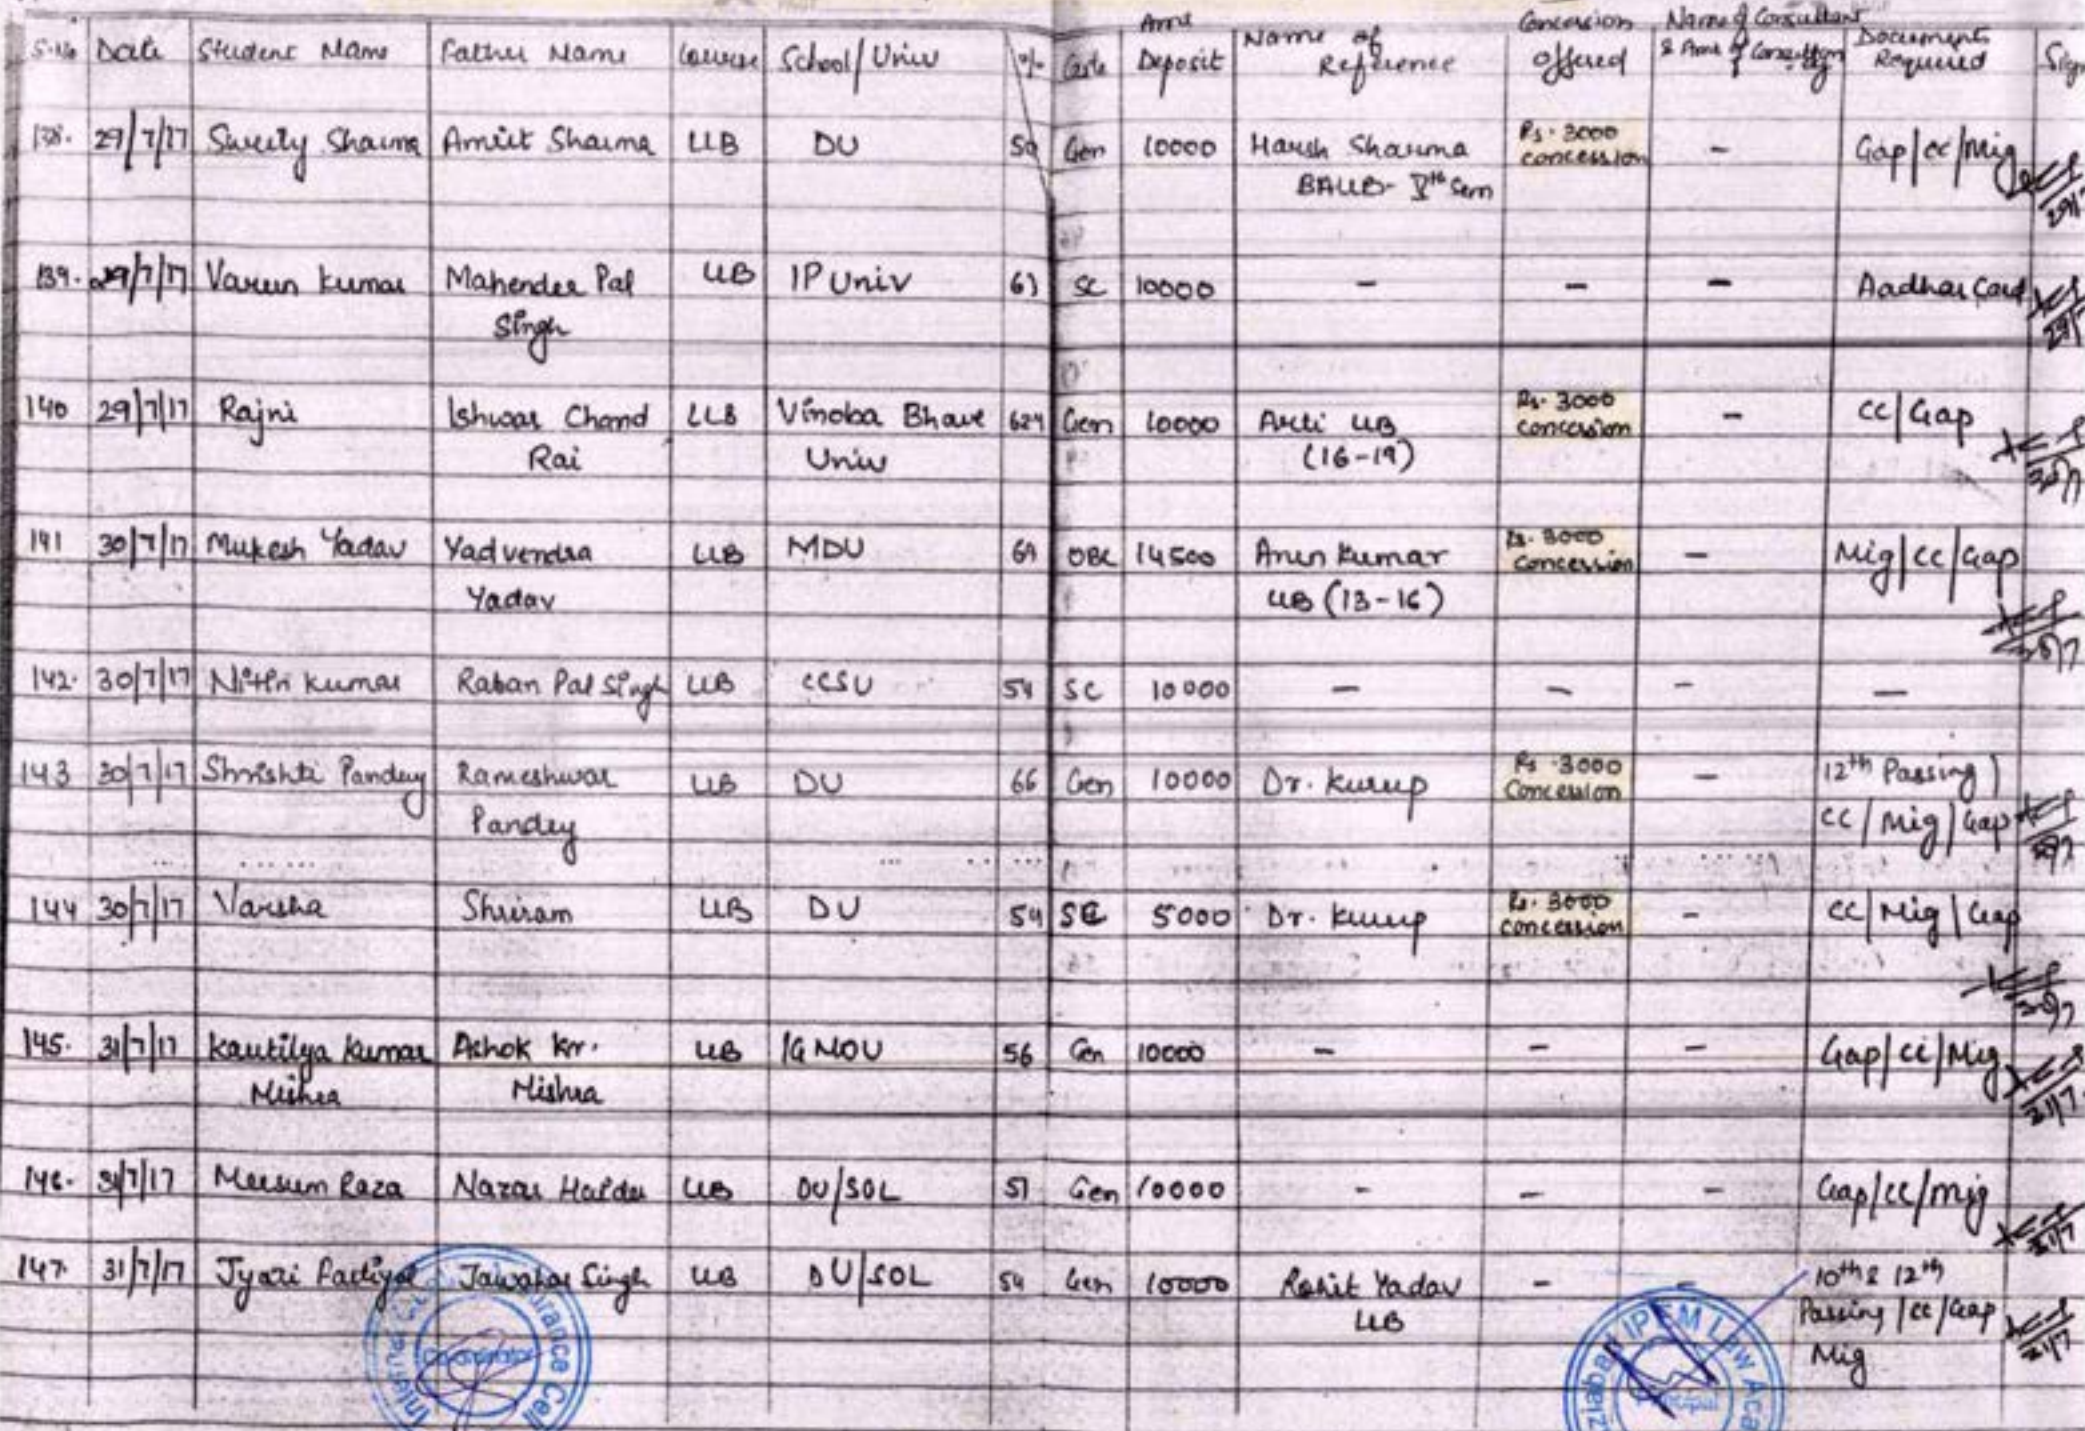 S.No Date Student Name Father Name Course School/Univ % Caste Amt Deposit Name of Reference Concession offered Name of Consultant & Amt of Consultation Documents Required Sign
138. 29/7/17 Sweety Sharma Amrit Sharma LLB DU 50 Gen 10000 Harsh Sharma Rs. 3000 concession - Gap/cc/Mig
BALLB- Vth Sem
139. 29/7/17 Varun Kumar Mahender Pal LLB IP Univ 61 SC 10000 - - - Aadhar Card
Singh
140 29/7/17 Rajni Ishwar Chand LLB Vinoba Bhave Gen 10000 Arti LLB Rs. 3000 concession - CC/Gap
Rai Univ (16-19)
141 30/7/17 Mukesh Yadav Yadvendra LLB MDU OBC 14500 Arun Kumar Rs. 3000 concession - Mig/CC/Gap
Yadav LLB (13-16)
142. 30/7/17 Nitin Kumar Ratan Pal Singh LLB CCSU SC 10000 - - - -
143 30/7/17 Shrishti Pandey Rameshwar LLB DU 66 Gen 10000 Dr. Kurup Rs. 3000 Concession - 12th Passing /
Pandey CC/Mig/Gap
144 30/7/17 Varsha Shriram LLB DU SC 5000 Dr. Kurup Rs. 3000 concession - CC/Mig/Gap
145. 31/7/17 Kautilya Kumar Ashok Kr. LLB IGNOU 56 Gen 10000 - - - Gap/CC/Mig
Mishra Mishra
146. 31/7/17 Meesum Raza Nazar Haider LLB DU/SOL 51 Gen 10000 - - - Gap/CC/Mig
147. 31/7/17 Jawahar Singh LLB DU/SOL Gen 10000 Rohit Yadav - 10th & 12th
LLB Passing/CC/Gap
Mig